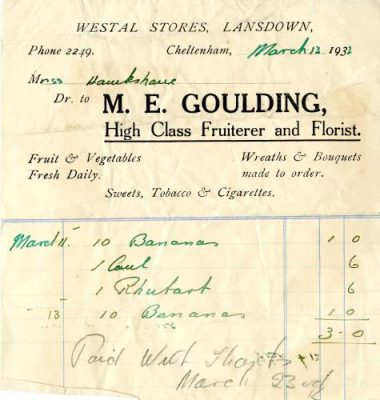 WESTAL STORES, LANSDOWN,
Phone 2249. Cheltenham, March 13 1932
Miss Hawkshaw
Dr. to M. E. GOULDING,
High Class Fruiterer and Florist.
Fruit & Vegetables Wreaths & Bouquets
Fresh Daily. made to order.
Sweets, Tobacco & Cigarettes.
March 11. 10 Bananas 1 0
1 Caul 6
1 Rhubarb 6
- 13 10 Bananas 1 0
3-0
Paid With Thanks
March 23rd